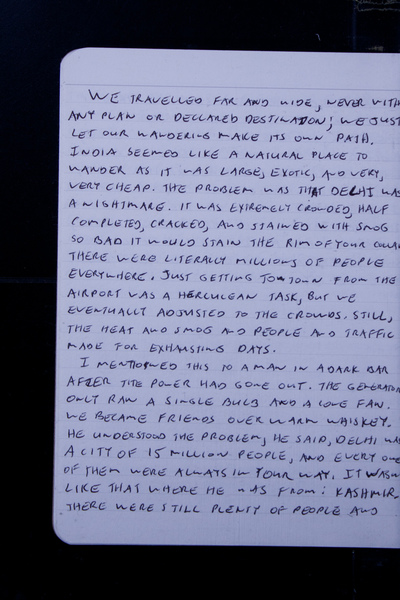 WE TRAVELLED FAR AND WIDE, NEVER WITH
ANY PLAN OR DECLARED DESTINATION; WE JUST
LET OUR WANDERING MAKE ITS OWN PATH.
INDIA SEEMED LIKE A NATURAL PLACE TO
WANDER AS IT WAS LARGE, EXOTIC, AND VERY,
VERY CHEAP. THE PROBLEM WAS THAT DELHI WAS
A NIGHTMARE. IT WAS EXTREMELY CROWDED, HALF
COMPLETED, CRACKED, AND STAINED WITH SMOG
SO BAD IT WOULD STAIN THE RIM OF YOUR COLLA
THERE WERE LITERALLY MILLIONS OF PEOPLE
EVERYWHERE. JUST GETTING TO TOWN FROM THE
AIRPORT WAS A HERCULEAN TASK, BUT WE
EVENTUALLY ADJUSTED TO THE CROWDS. STILL,
THE HEAT AND SMOG AND PEOPLE AND TRAFFIC
MADE FOR EXHAUSTING DAYS.
I MENTIONED THIS TO A MAN IN A DARK BAR
AFTER THE POWER HAD GONE OUT. THE GENERATOR
ONLY RAN A SINGLE BULB AND A LONE FAN.
WE BECAME FRIENDS OVER WARM WHISKEY.
HE UNDERSTOOD THE PROBLEM, HE SAID, DELHI WAS
A CITY OF 15 MILLION PEOPLE, AND EVERY ONE
OF THEM WERE ALWAYS IN YOUR WAY. IT WASN
LIKE THAT WHERE HE WAS FROM: KASHMIR.
THERE WERE STILL PLENTY OF PEOPLE AND